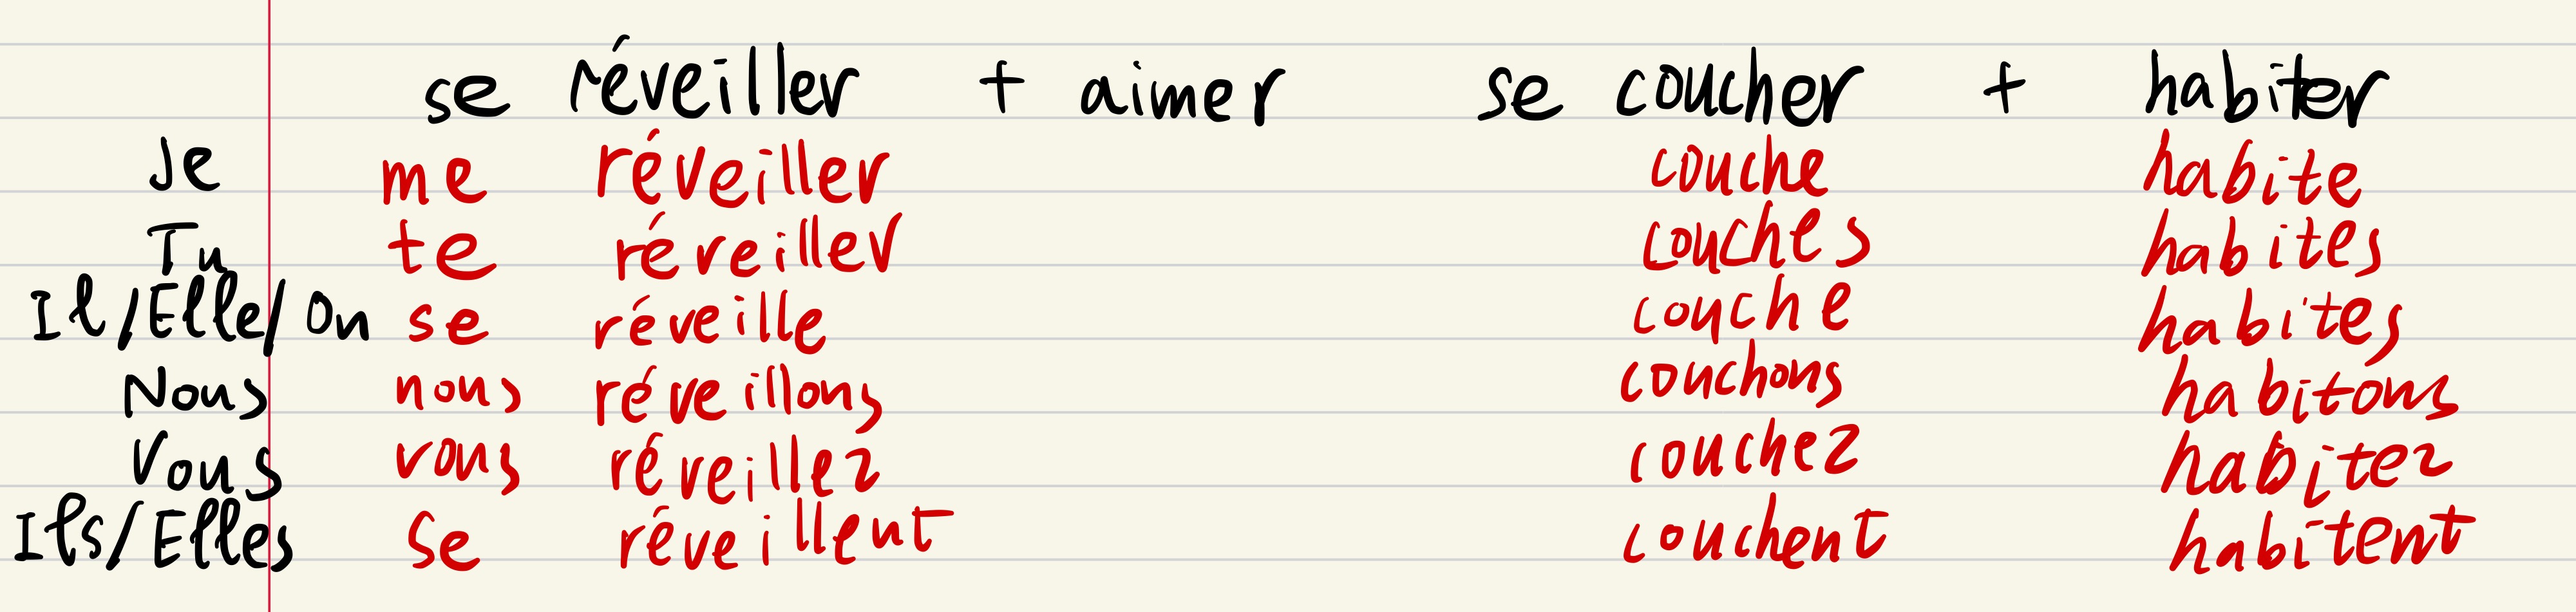 se réveiller + aimer se coucher + habiter
Je me réveiller couche habite
Tu te réveiller couches habites
Il/Elle/On se réveille couche habites
Nous nous réveillons couchons habitons
Vous vous réveillez couchez habitez
Ils/Elles se réveillent couchent habitent